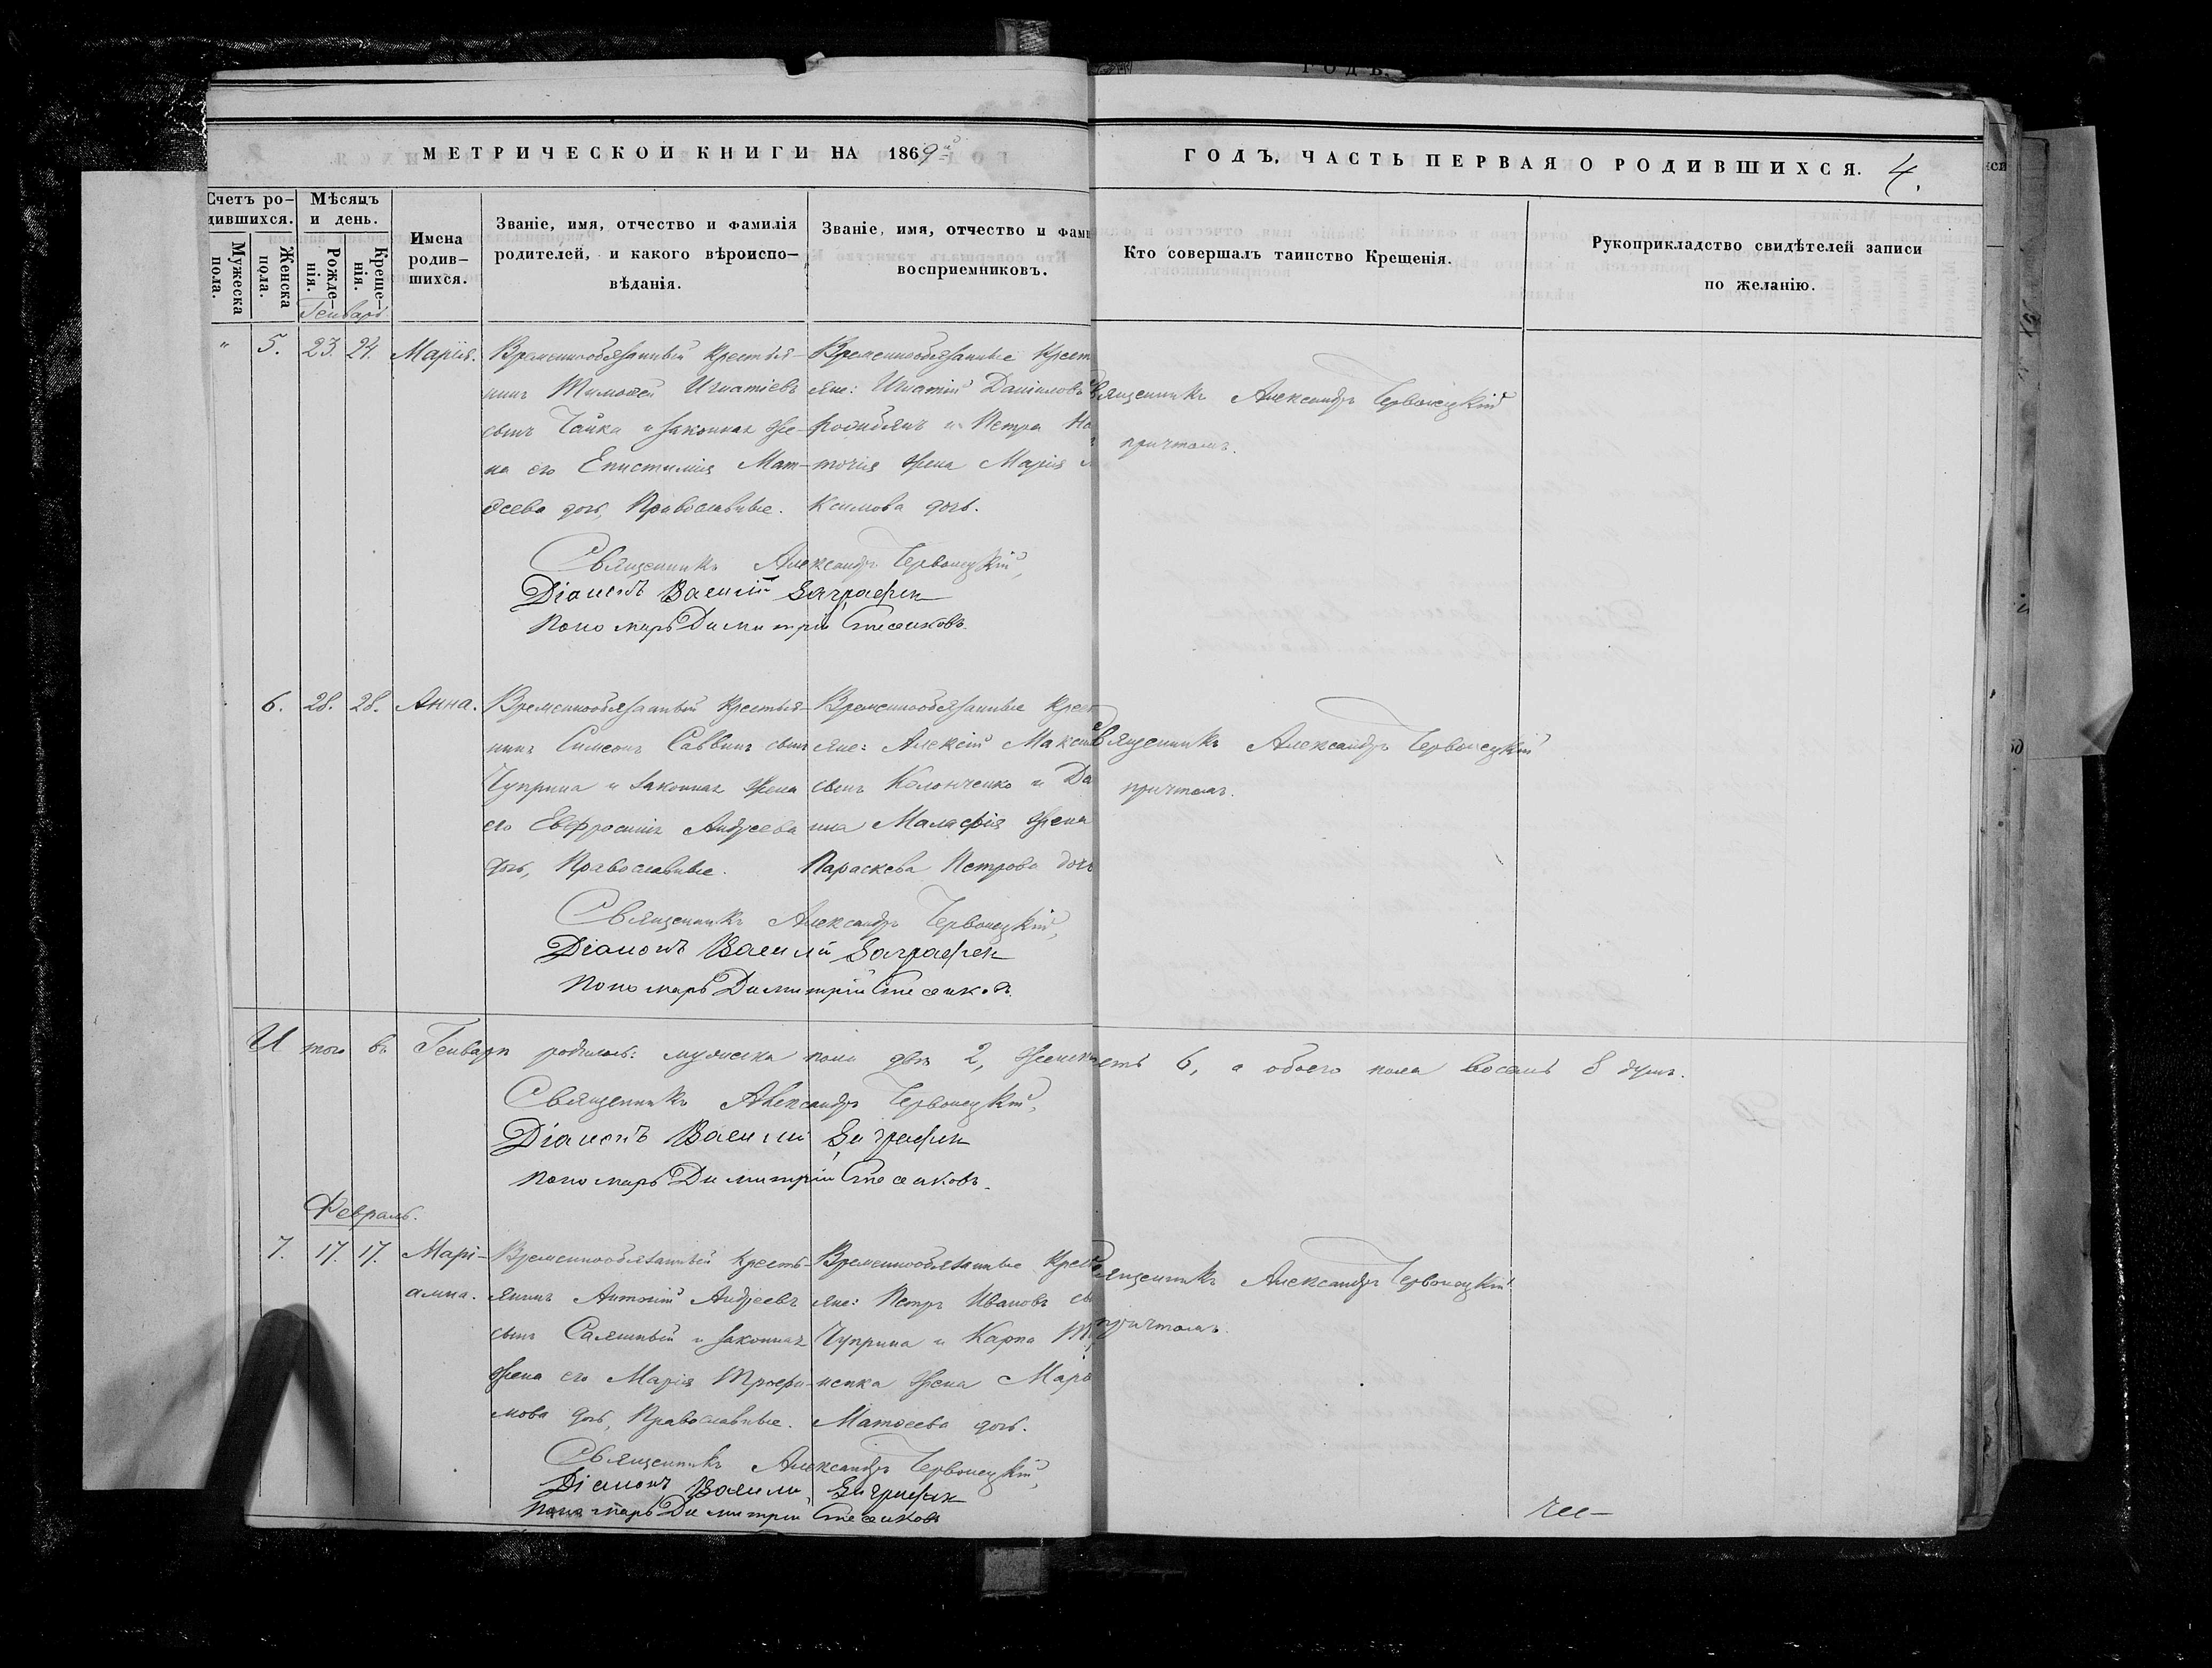 МЕТРИЧЕСКОЙ КНИГИ НА 1869й
ГОДЪ. ЧАСТЬ ПЕРВАЯ О РОДИВШИХСЯ. 4.
Счетъ родившихся.
Мужеска пола.
Женска пола.
Мѣсяцъ и день.
Рожденія.
Крещенія.
Имена родив-
шихся.
Званіе, имя, отчество и фамилія
родителей, и какого вѣроиспо-
вѣданія.
Званіе, имя, отчество и фами
восприемниковъ.
Кто совершалъ таинство Крещенія.
Рукоприкладство свидѣтелей записи
по желанію.
Генварь
" 5. 23. 24. Марія.
Временнообязанный крестья-
нинъ Тимоѳей Игнатіевъ
сынъ Чайка и законная же-
на его Епистимія Мат-
ѳеева дочь, Православные.
Временнообязанные крест
яне: Игнатій Даніиловъ
и Петра
жена Марія
ксимова дочь.
Священникъ Александръ Червонецкій
причтомъ.
Священникъ Александръ Червонецкій,
Діаконъ Василій Заграфек
Пономарь Димитрій Стесенковъ
6. 28. 28. Анна.
Временнообязанный крестья-
нинъ Симеонъ Саввинъ сынъ
Чуприна и законная жена
его Евфросинія Андреева
дочь, Православные.
Временнообязанные крест
яне: Алексій Макси
сынъ Колонченко и Да
жена
Параскева Петрова дочь
Священникъ Александръ Червонецкій
причтомъ.
Священникъ Александръ Червонецкій,
Діаконъ Василій Заграфек
Пономарь Димитрій Стесенковъ
Итого въ Генварѣ родилось: мужеска пола два 2, женска
есть 6, а обоего пола восемь 8 душъ.
Священникъ Александръ Червонецкій,
Діаконъ Василій Заграфек
Пономарь Димитрій Стесенковъ
Февраль.
7. 17. 17. Марі-
анна.
Временнообязанный кресть-
янинъ Антоній Андреевъ
сынъ и законная
жена его Марія Трофи-
мова дочь, Православные.
Временнообязанные крест
яне: Петръ Ивановъ сы
Чуприна и Карпа
жена Марѳ
Матѳеева дочь.
Священникъ Александръ Червонецкій
причтомъ.
Священникъ Александръ Червонецкій,
Діаконъ Василій Заграфек
Пономарь Димитрій Стесенковъ